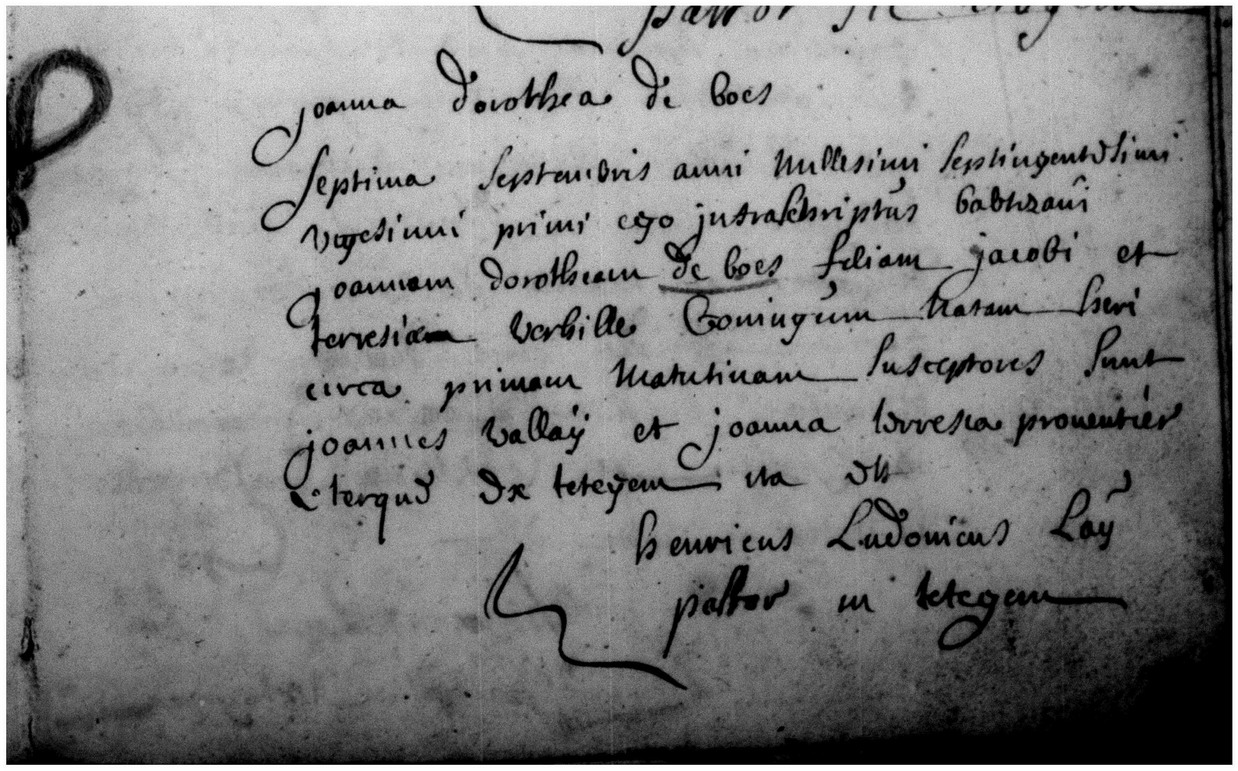 pastor in tetegem
joanna dorothea de boes
septima septembris anni millesimi septingentesimi
vigesimi primi ego infrascriptus babtizavi
joannam dorotheam de boes filiam jacobi et
terresiae verhille Coniugum natam heri
circa primam matutinam susceptores sunt
joannes vallaÿ et joanna terresia prouentier
uterque ex tetegem ita est
henricus Ludovicus Laÿ
pastor in tetegem